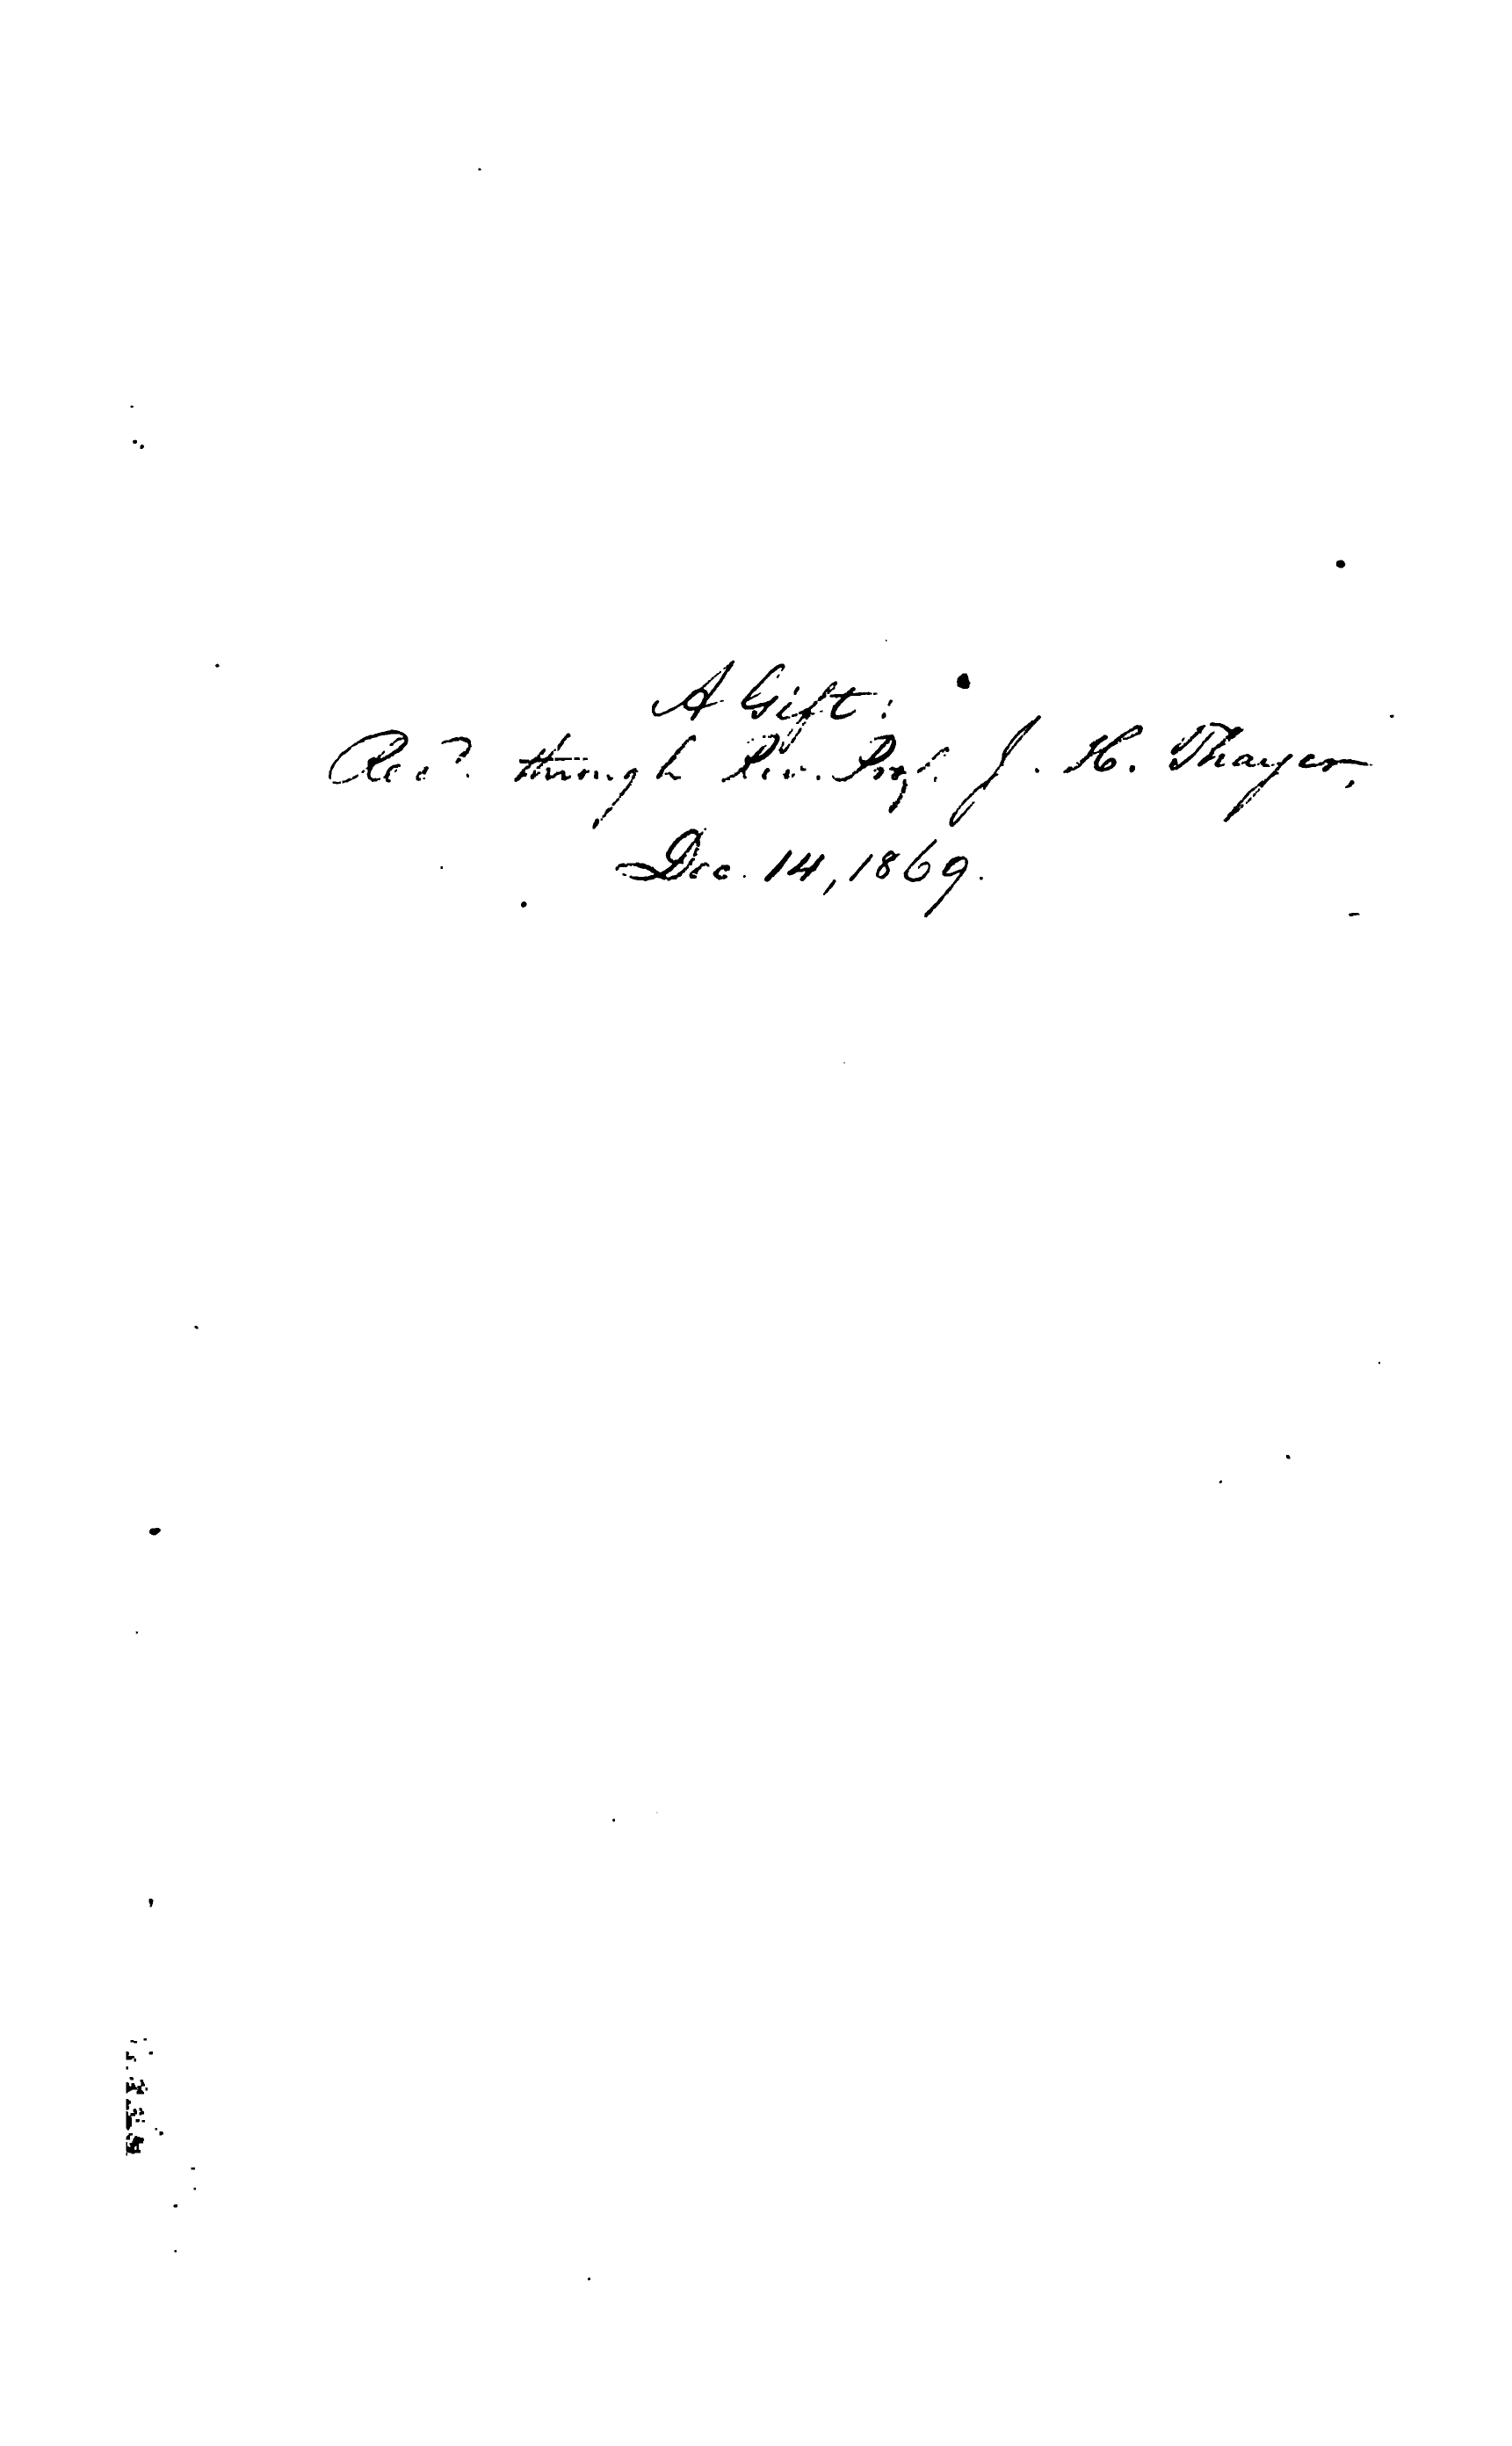 A Gift:
Rec'd. through Rev. Prof. J. H. Thayer,
Dec. 14, 1869.